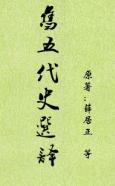 旧五代史選譯
原著:薛居正 等